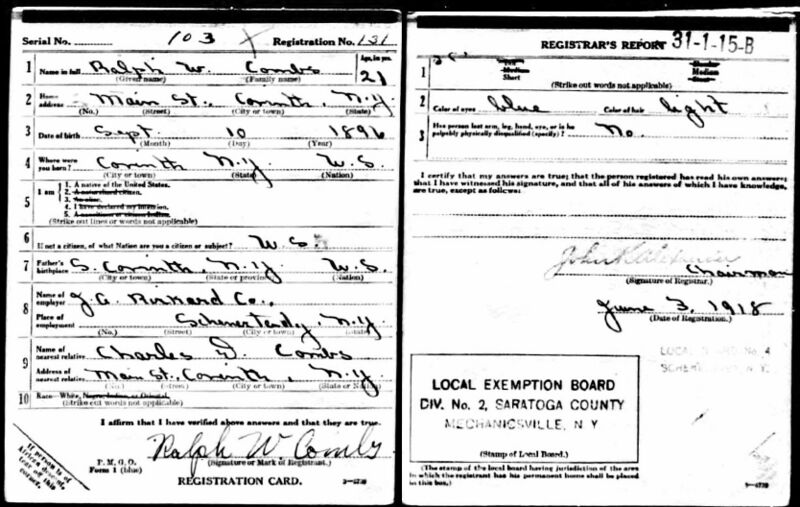 Serial No. 103 X Registration No. 131
1 Name in full Ralph W. Combs Age, in yrs. 21
(Given name) (Family name)
2 Home address Main St., Corinth, N.Y.
(No.) (Street) (City or town) (State)
3 Date of birth Sept. 10 1896
(Month) (Day) (Year)
4 Where were you born? Corinth N.Y. U.S.
(City or town) (State) (Nation)
5 I am
1. A native of the United States.
2. A naturalized citizen.
3. An alien.
4. I have declared my intention.
5. A noncitizen or citizen Indian.
(Strike out lines or words not applicable)
6 If not a citizen, of what Nation are you a citizen or subject? U.S.
7 Father's birthplace S. Corinth, N.Y. U.S.
(City or town) (State or province) (Nation)
8 Name of employer J.A. Co.,
Place of employment Schenectady, N.Y.
(No.) (Street) (City or town) (State)
9 Name of nearest relative Charles D. Combs
Address of nearest relative Main St., Corinth, N.Y.
(No.) (Street) (City or town) (State or Nation)
10 Race—White, Negro, Indian, or Oriental.
(Strike out words not applicable)
I affirm that I have verified above answers and that they are true.
Ralph W. Combs
P. M. G. O.
Form 1 (blue) (Signature or Mark of Registrant.)
REGISTRATION CARD.
If person is of African descent, tear off this corner.
REGISTRAR'S REPORT 31-1-15-B
1 Tall Medium Short Slender Medium Stout
(Strike out words not applicable)
2 Color of eyes blue Color of hair light
3 Has person lost arm, leg, hand, eye, or is he palpably physically disqualified (specify)? No.
I certify that my answers are true; that the person registered has read his own answers;
that I have witnessed his signature, and that all of his answers of which I have knowledge,
are true, except as follows:
John
Chairman
(Signature of Registrar.)
June 3, 1918
(Date of Registration.)
LOCAL BOARD No. 4
SCHENECTADY, N. Y.
LOCAL EXEMPTION BOARD
DIV. No. 2, SARATOGA COUNTY
MECHANICSVILLE, N. Y.
(Stamp of Local Board.)
(The stamp of the local board having jurisdiction of the area
in which the registrant has his permanent home shall be placed
in this box.)